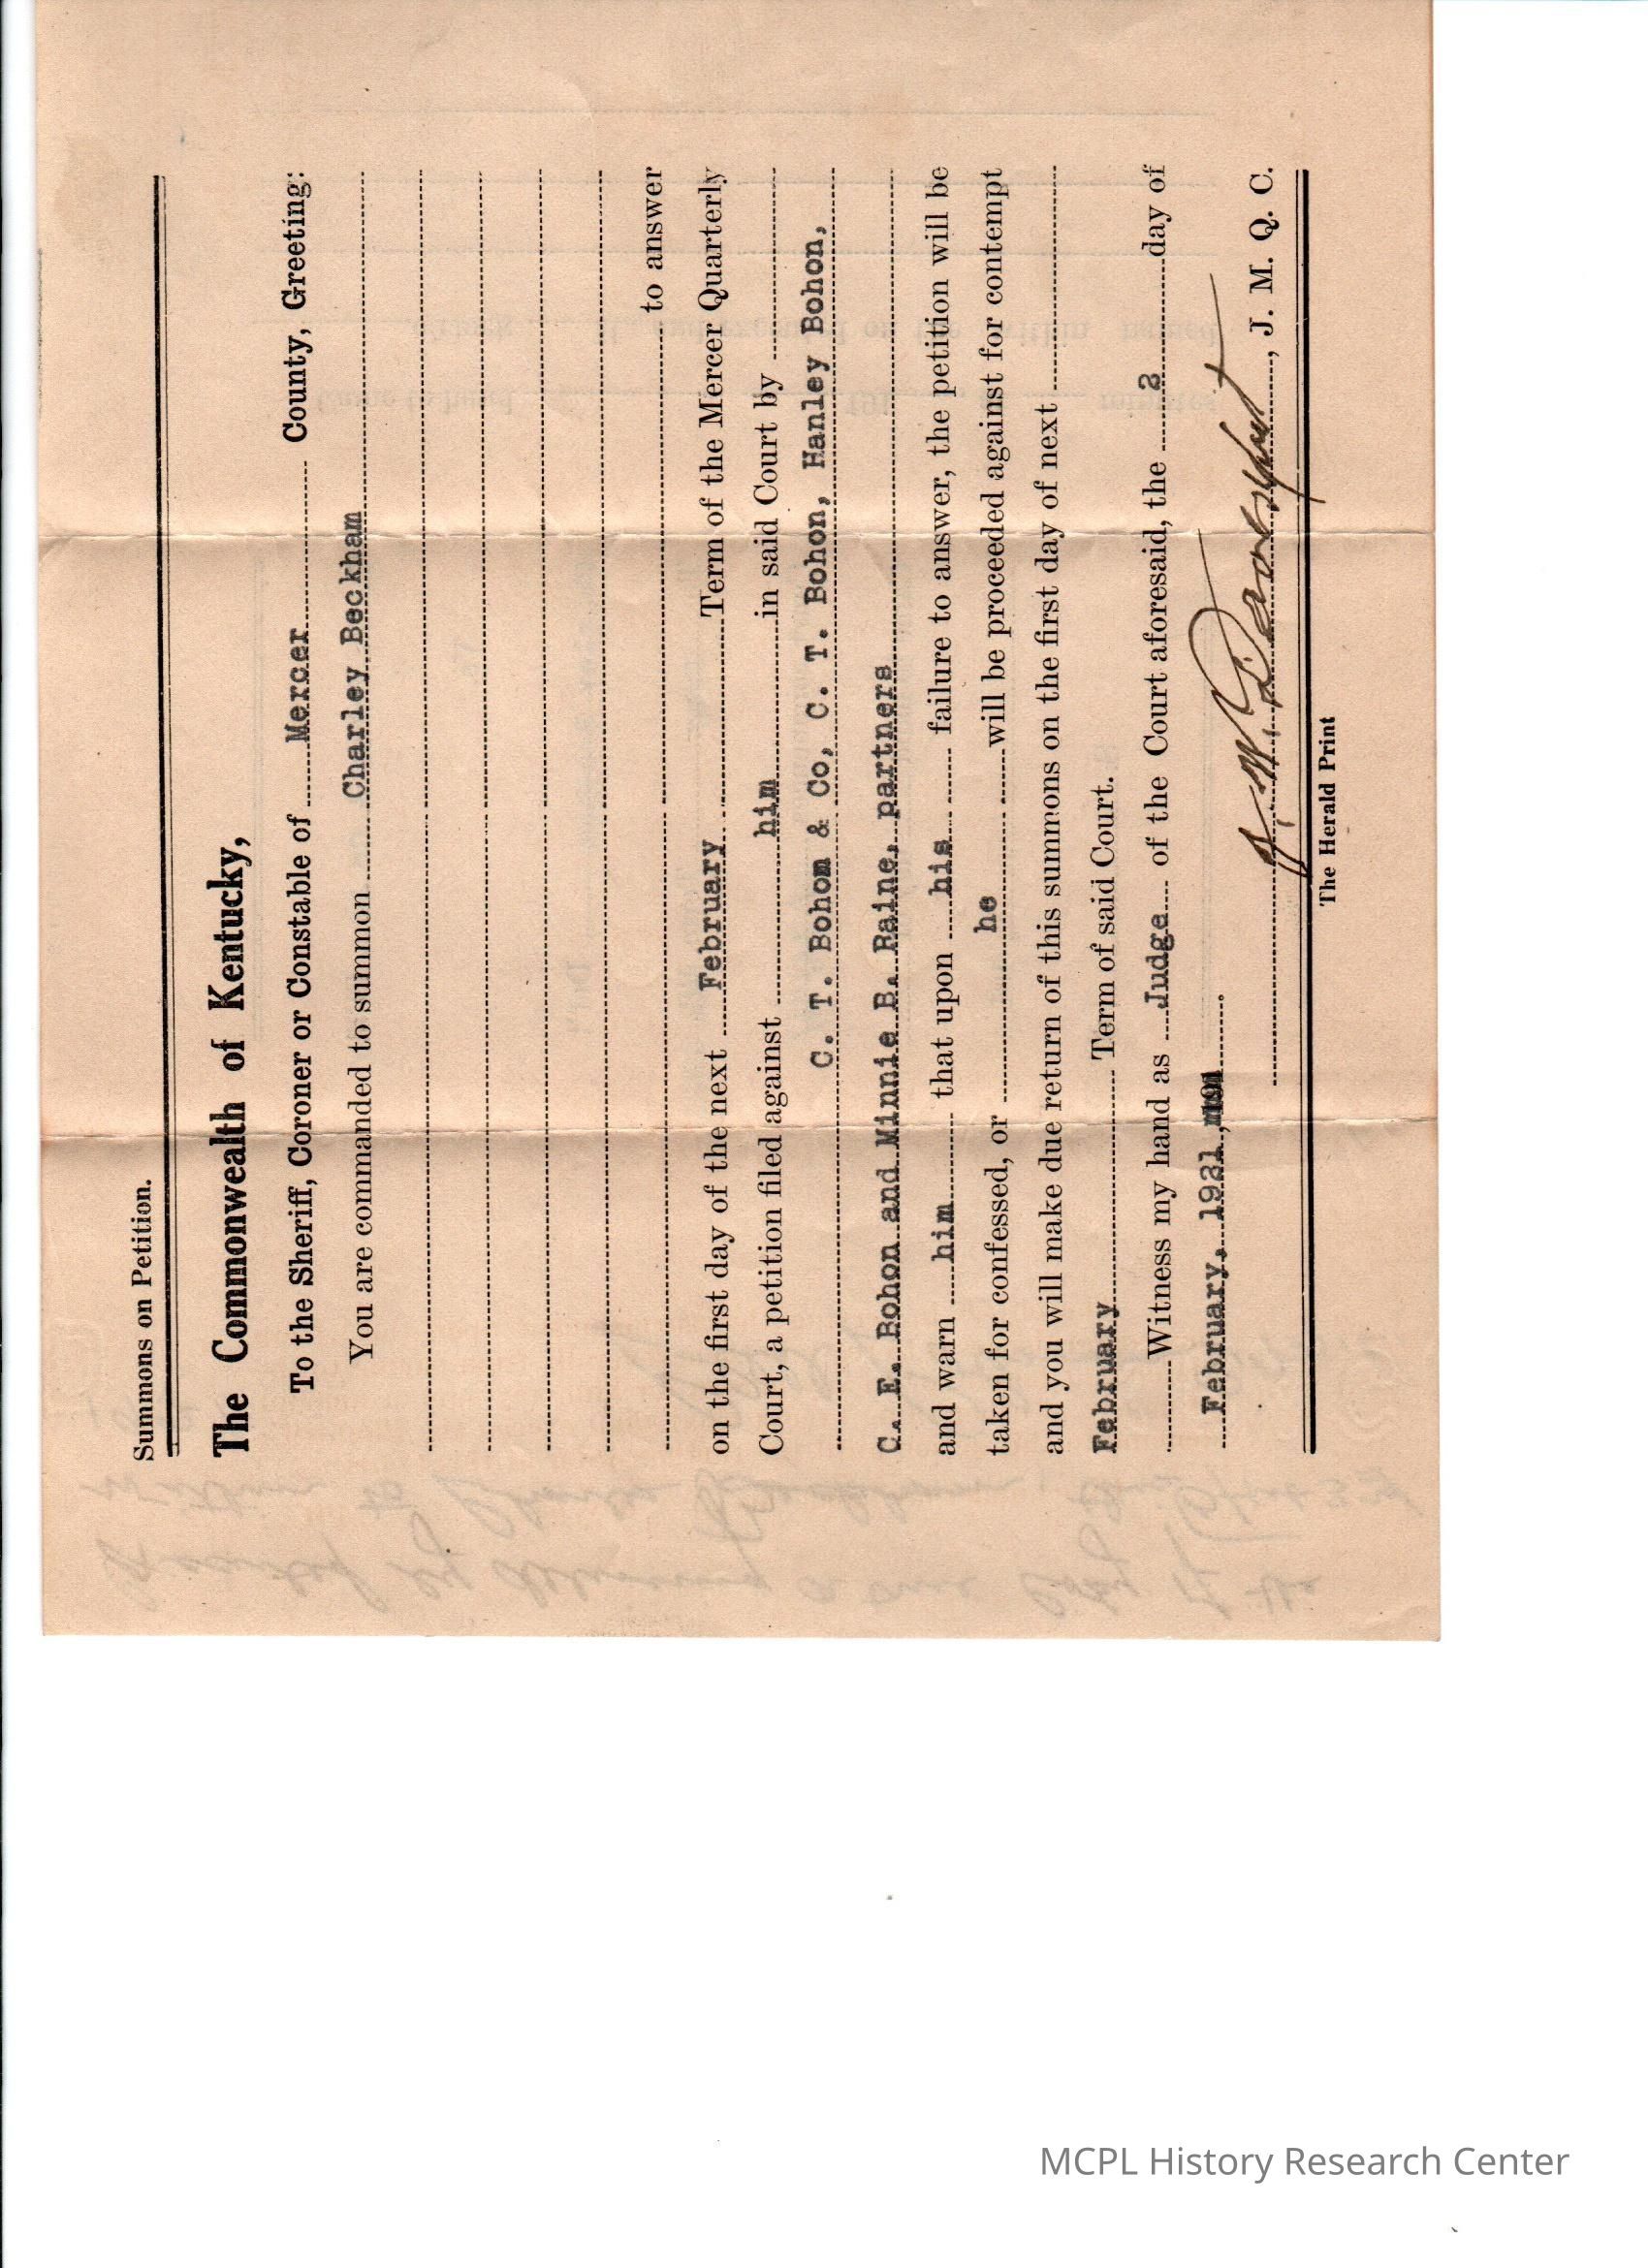 Summons on Petition.
The Commonwealth of Kentucky,
To the Sheriff, Coroner or Constable of Mercer County, Greeting:
You are commanded to summon Charley Beckham
to answer
on the first day of the next February Term of the Mercer Quarterly
Court, a petition filed against him in said Court by
C. T. Bohom & Co, C. T. Bohon, Hanley Bohon,
C. E. Bohon and Minnie B. Raine, partners
and warn him that upon his failure to answer, the petition will be
taken for confessed, or he will be proceeded against for contempt
and you will make due return of this summons on the first day of next
February Term of said Court.
Witness my hand as Judge of the Court aforesaid, the 2 day of
February, 1921,
, J. M. Q. C.
The Herald Print
MCPL History Research Center